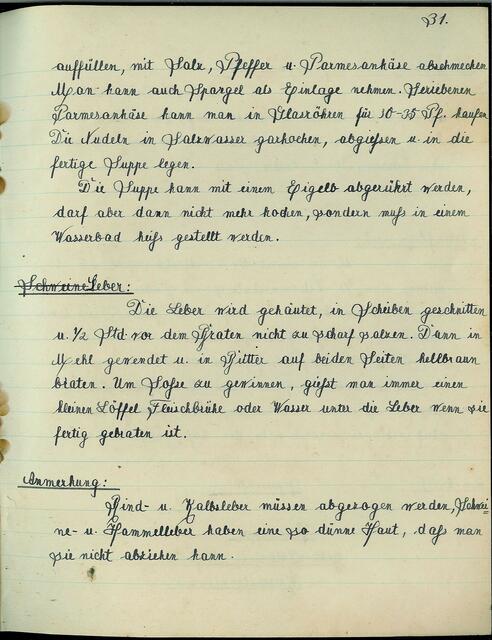 31.
auffüllen, mit Salz, Pfeffer u. Parmesankäse abschmecken
Man kann auch Spargel als Einlage nehmen. Geriebenen
Parmesankäse kann man in Glasröhren für 30-35 Pf. kaufen
Die Nudeln in Salzwasser garkochen, abgießen u. in die
fertige Suppe legen.
Die Suppe kann mit einem Eigelb abgerührt werden,
darf aber dann nicht mehr kochen, sondern muß in einem
Wasserbad heiß gestellt werden.
Schweineleber:
Die Leber wird gehäutet, in Scheiben geschnitten
u. 1/2 Std. vor dem Braten nicht zu scharf salzen. Dann in
Mehl gewendet u. in Butter auf beiden Seiten hellbraun
braten. Um Soße zu gewinnen, gießt man immer einen
kleinen Löffel Fleischbrühe oder Wasser unter die Leber wenn sie
fertig gebraten ist.
Anmerkung:
Rind- u. Kalbsleber müssen abgezogen werden, Schwei=
ne- u. Hammelleber haben eine so dünne Haut, daß man
sie nicht abziehen kann.